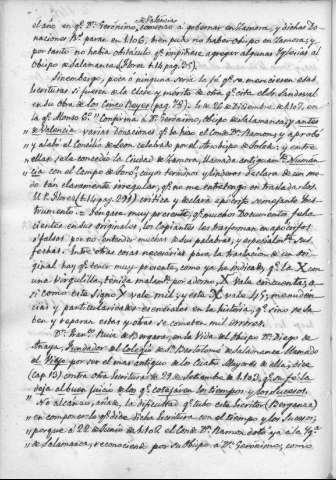 de Valencia
el año en qᵉ Dⁿ Gerónimo, comenzó à gobernar en Zamora, y dichas Do
naciones pᵒ parar en 1106, bien pudo no haber Obispo en Zamora; y
por tanto no había obstáculo qᵉ impidiese agregar algunas Iglesias al
Obispo de Salamanca (Florez t. 14 pag. 35).
Sin embargo, poca ó ninguna sería la fé qᵉ se merecieren estas
Escrituras si fueren de la clase y mérito de otra qᵉ cita el Sr Sandoval
en su Obra de los Cinco Reyes (pag. 78). de 26 de Diciembre de 1107, en
la qᵉ Alonso 6º "Confirma à Dⁿ Gerónimo, Obispo de Salamanca, y antes
de Valencia varias donaciones qᵉ le hizo el Conde Dⁿ Ramon, y aprobó
y alabó el Concilio de Leon celebrado por el Arzobispo de Toledo: y entre
ellas se le concedió la Ciudad de Zamora, llamada antiguamᵗᵉ Numan
cia, con el Campo de Toro, cuyos terminos y linderos declara de un mo
do tan claramente irregular, qᵉ no me entretengo en trasladarlos.
El P. Florez (t. 14 pag. 299) critica y declara apócrifo semejante Ins
trumento. = Tengase muy presente, qᵉ muchos Documentos feha
cientes en sus originales, los Copiantes los trasforman en apócrifos
ó falsos por no entender muchas de sus palabras, y especialmᵗᵉ sus
fechas. Entre otras cosas necesarias para la traslacion de un ori
ginal hay qᵉ tener muy presente, como ya ha indicado, qᵉ la X con
una Virgulilla, tenida malamᵗᵉ por adorno, X vale cuarenta; a
si como este signo X vale mil, y este X vale 45; menuden
cias y particularidades esenciales en la historia, y qᵉ sino se sa
ben y reparan estas y otras se cometen mil errores.
Dⁿ Franᶜᵒ Ruiz de Vergara, en la Vida del Obispo Dⁿ Diego de
Anaya, Fundador del Colegio de Sⁿ Bartolomé de Salamanca llamado
el Viejo por ser el mas antiguo de los Cuatro Mayores de ella; dice
(cap. 13) contra otra Escritura de 22 de Setiembre de 1103, qᵉ se fe la
deja al buen juicio de los qᵉ cotejaren los tiempos y los sucesos.
No alcanzo, añade, la dificultad qᵉ tubo este Escritor (Berganza)
en componer lo qᵉ dice dicha Escritura con el tiempo y los sucesos,
porque à 22 de Junio de 1102 el Conde Dⁿ Ramon dotó ya à la Ygᵃ
de Salamanca, reconociendo por su Obispo à Dⁿ Gerónimo, como